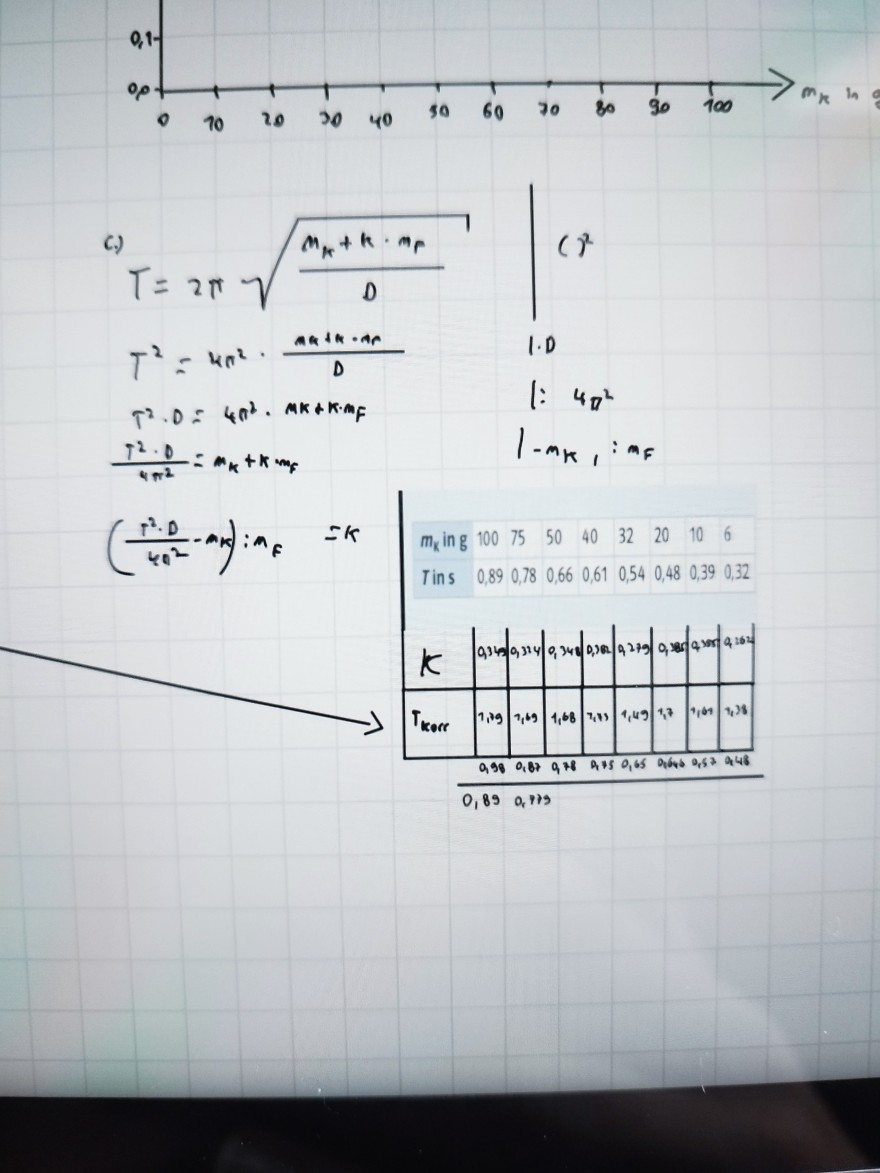 0,1
0,0
0 10 20 30 40 50 60 70 80 90 100
m_K in
c.)
T = 2π √((m_K + K · m_F) / D) | ( )²
T² = 4π² · (m_K + K · m_F) / D | · D
T² · D = 4π² · m_K + K · m_F | : 4π²
(T² · D) / 4π² = m_K + K · m_F | - m_K , : m_F
((T² · D) / 4π² - m_K) : m_F = K
m_K in g 100 75 50 40 32 20 10 6
T in s 0,89 0,78 0,66 0,61 0,54 0,48 0,39 0,32
K 0,349 0,324 0,348 0,382 0,279 0,385 0,262
T_Korr 1,79 1,69 1,68 1,73 1,49 1,7 1,61 1,38
0,98 0,87 0,78 0,75 0,65 0,646 0,57 0,48
0,89 0,779